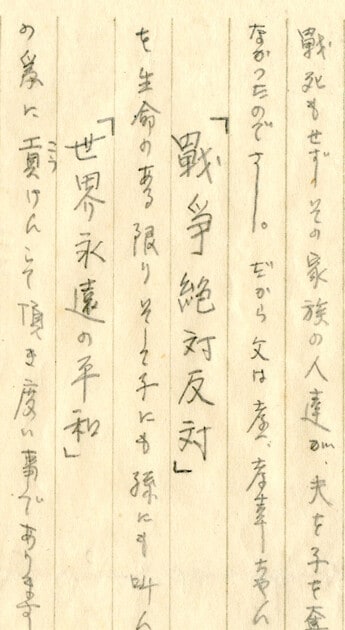 戰死もせず、その家族の人達が、夫を子を奪
なかったので。だから父は
「戰爭絶対反対」
を生命のある限りそして子にも孫にも叫ん
「世界永遠の平和」
の爲に貢けんして頂き度い事であります
こう